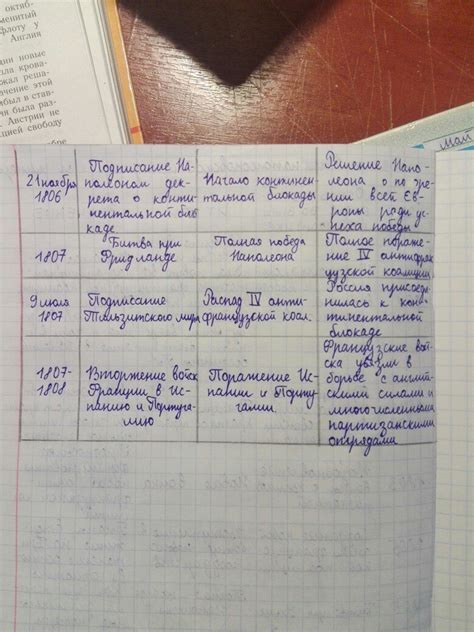 октяб-
менитый
флоту у
Англия
ии новые
ила крова-
ржал реша-
ачение этой
ибыл в став-
ия была раз-
. Австрии не
ицией свободу
май
21 ноября
1806
Подписание На-
полеоном дек-
рета о конти-
нентальной бло-
каде
Начало континен-
тальной блокады
Решение Напо-
леона о по
нии всей Ев-
ропы ради ус-
пеха победы
1807
Битва при
Фридланде
Полная победа
Наполеона
Полное пораже-
ние IV антифран-
цузской коалиции
9 июля
1807
Подписание
Тильзитского мира
Распад IV анти-
французской коал.
Россия присое-
нилась к кон-
тинентальной
блокаде
1807-
1808
Вторжение войск
Франции в Ис-
панию и Португа-
лию
Поражение Ис-
пании и Порту
галии.
Французские вой-
ска увязли в
борьбе с англий-
скими силами и
многочисленными
партизанскими
отрядами.